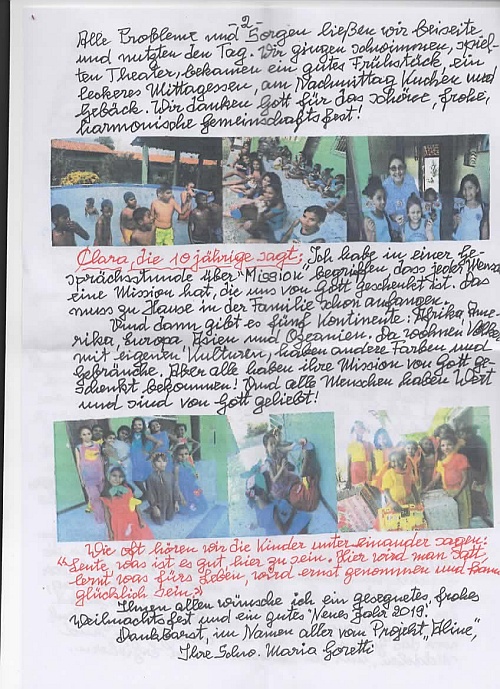 -2-
Alle Probleme und Sorgen ließen wir beiseite
und nutzten den Tag. Wir gingen schwimmen, spiel-
ten Theater, bekamen ein gutes Frühstück, ein
leckeres Mittagessen, am Nachmittag Kuchen und
Gebäck. Wir danken Gott für das schöne, frohe,
harmonische Gemeinschaftsfest!
Clara, die 10 jährige sagt: Ich habe in einer Ge-
sprächsstunde über "Mission" begriffen, dass jeder Mensch
eine Mission hat, die uns von Gott geschenkt ist. Das
muss zu Hause in der Familie schon anfangen.
Und dann gibt es fünf Kontinente: Afrika, Ame-
rika, Europa, Asien und Ozeanien. Da wohnen Völker
mit eigenen Kulturen, haben andere Farben und
Gebräuche. Aber alle haben ihre Mission von Gott ge-
schenkt bekommen! Und alle Menschen haben Wert
und sind von Gott geliebt!
Wie oft hören wir die Kinder untereinander sagen:
"Leute, was ist es gut hier zu sein. Hier wird man satt,
lernt was fürs Leben, wird ernst genommen und kann
glücklich sein."
Ihnen allen wünsche ich ein gesegnetes, frohes
Weihnachtsfest und ein gutes Neues Jahr 2019.
Dankbarst, im Namen aller vom Projekt
Ihre Schw. Maria Goretti